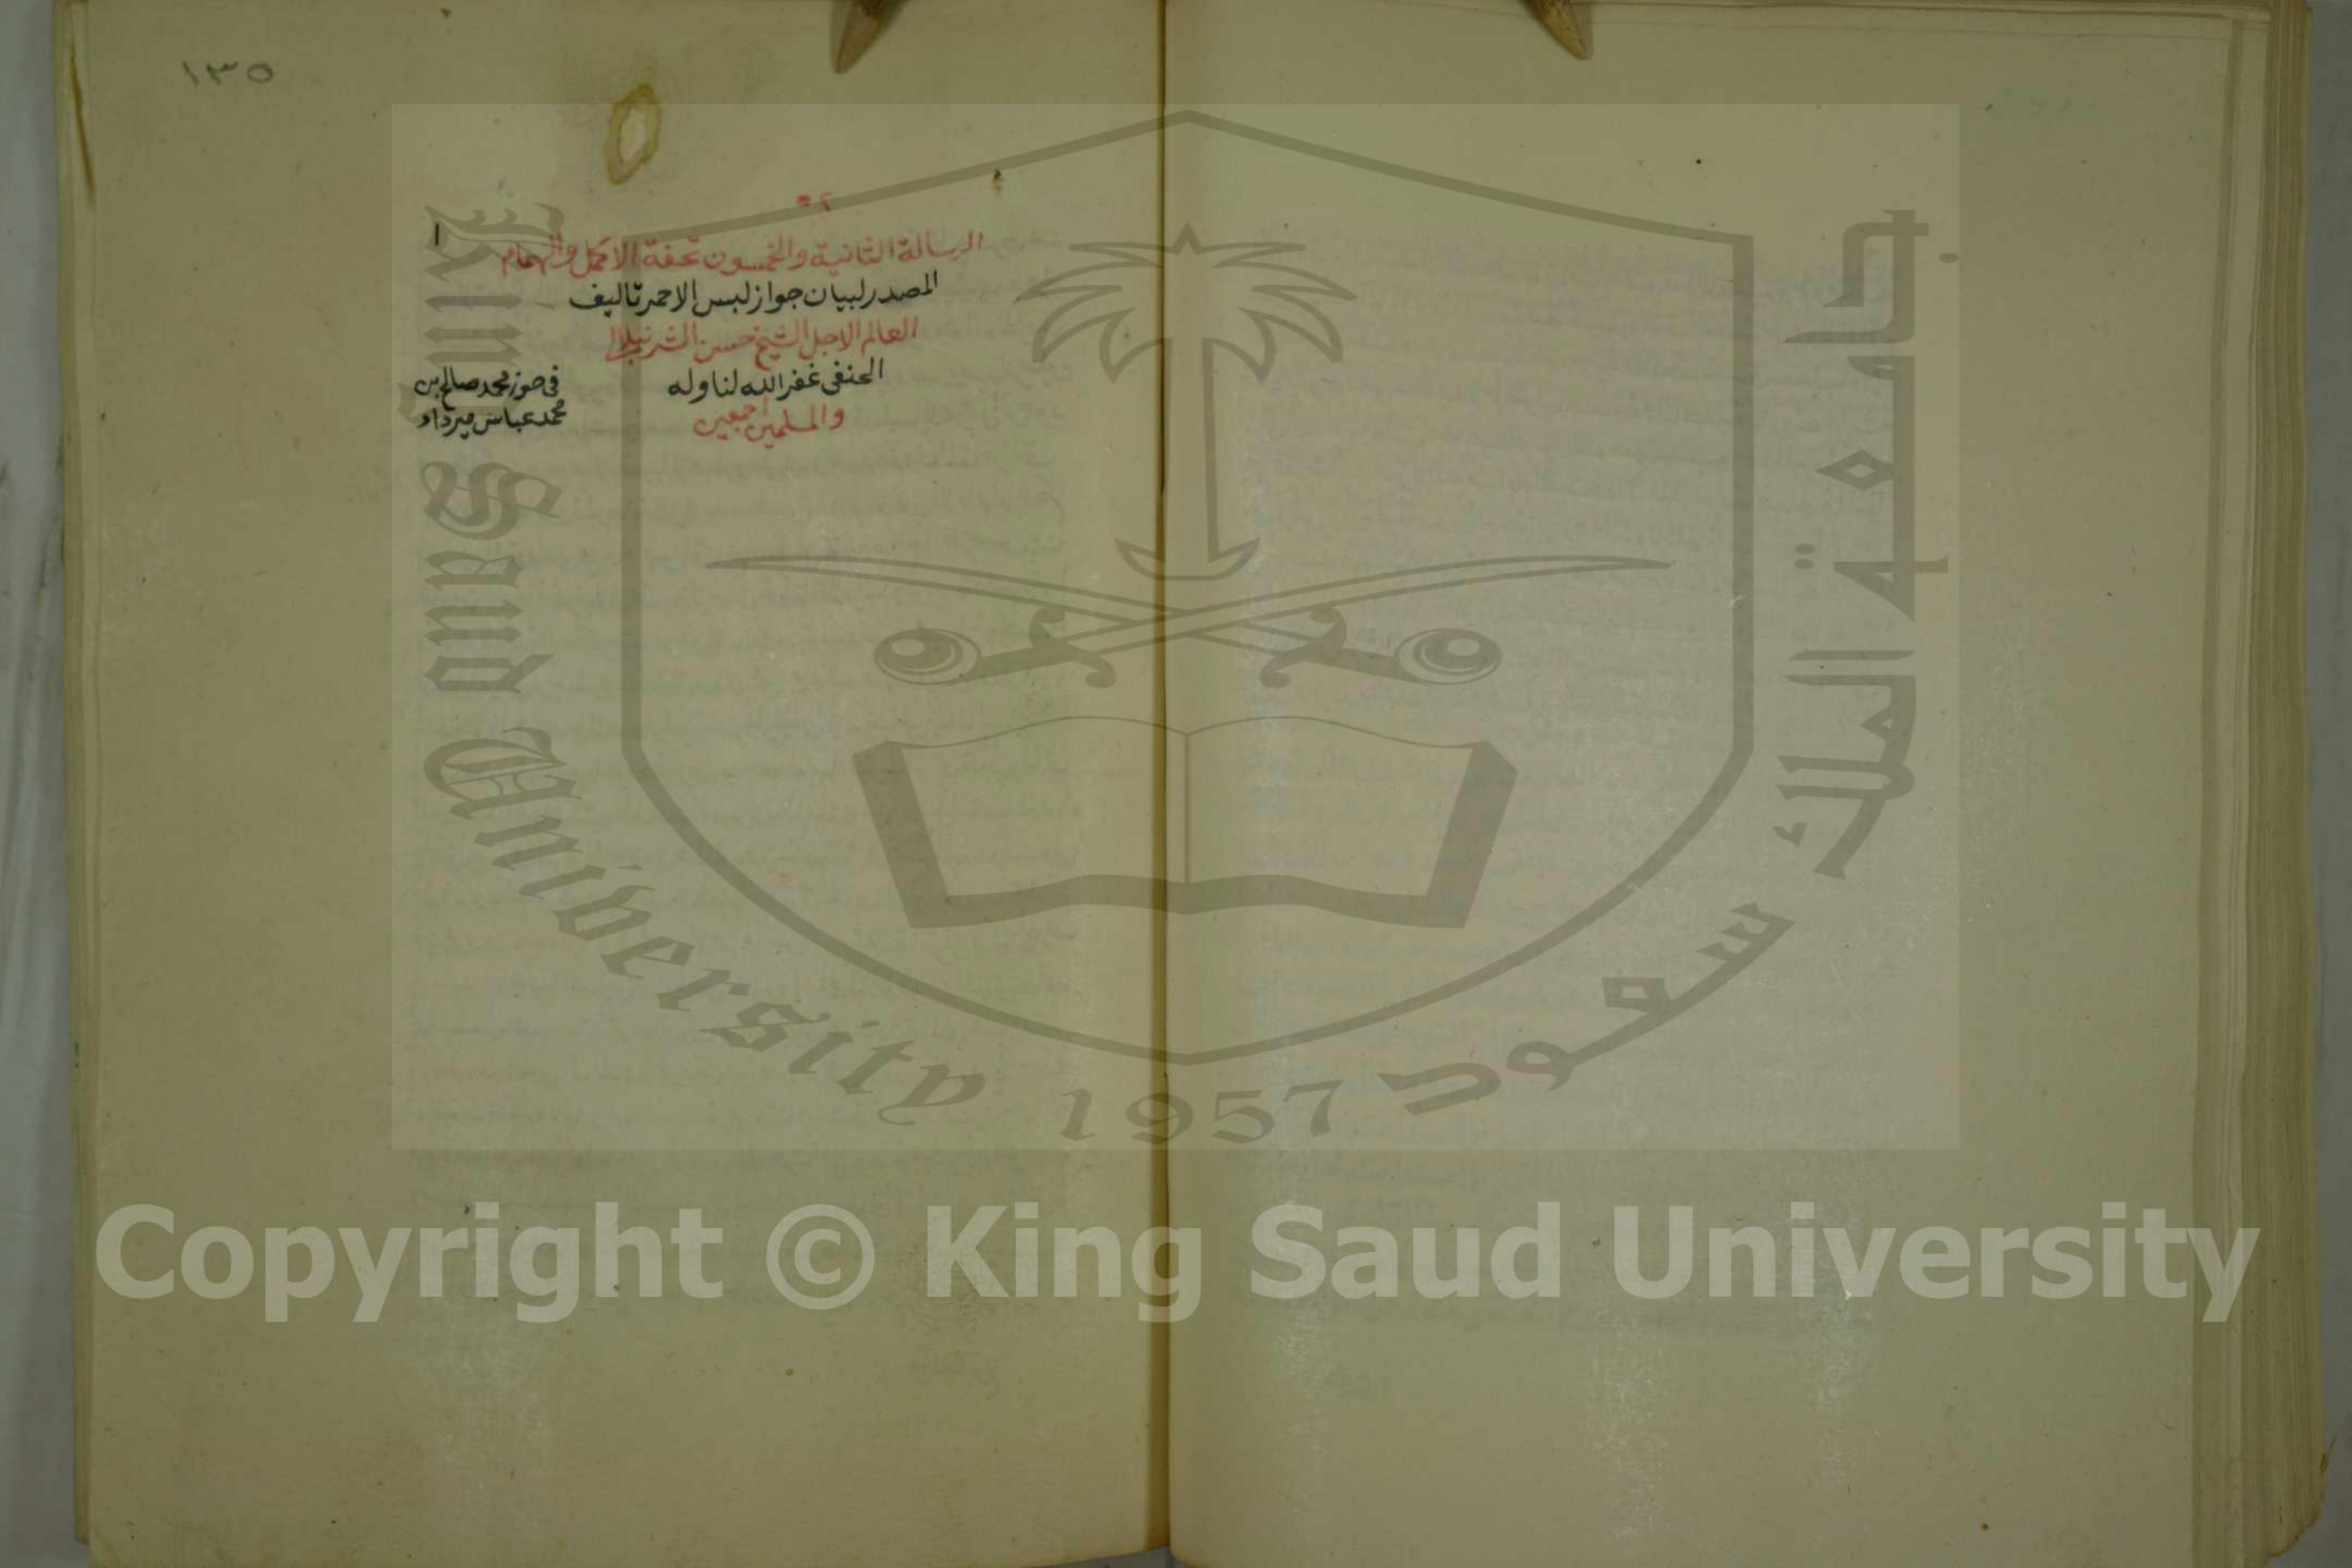 ١٣٥
٥٢
١
الرسالة الثانية والخمسون تحفة الاكمل والهمام
المصدر لبيان جواز لبس الاحمر تاليف
العالم الاجل الشيخ حسن الشرنبلالي
الحنفى غفر الله لنا وله
والمسلمين اجمعين
فى حوز محمد صالح بن
محمد عباس ميرداد
King Saud University
1957
جامعة الملك سعود
Copyright © King Saud University